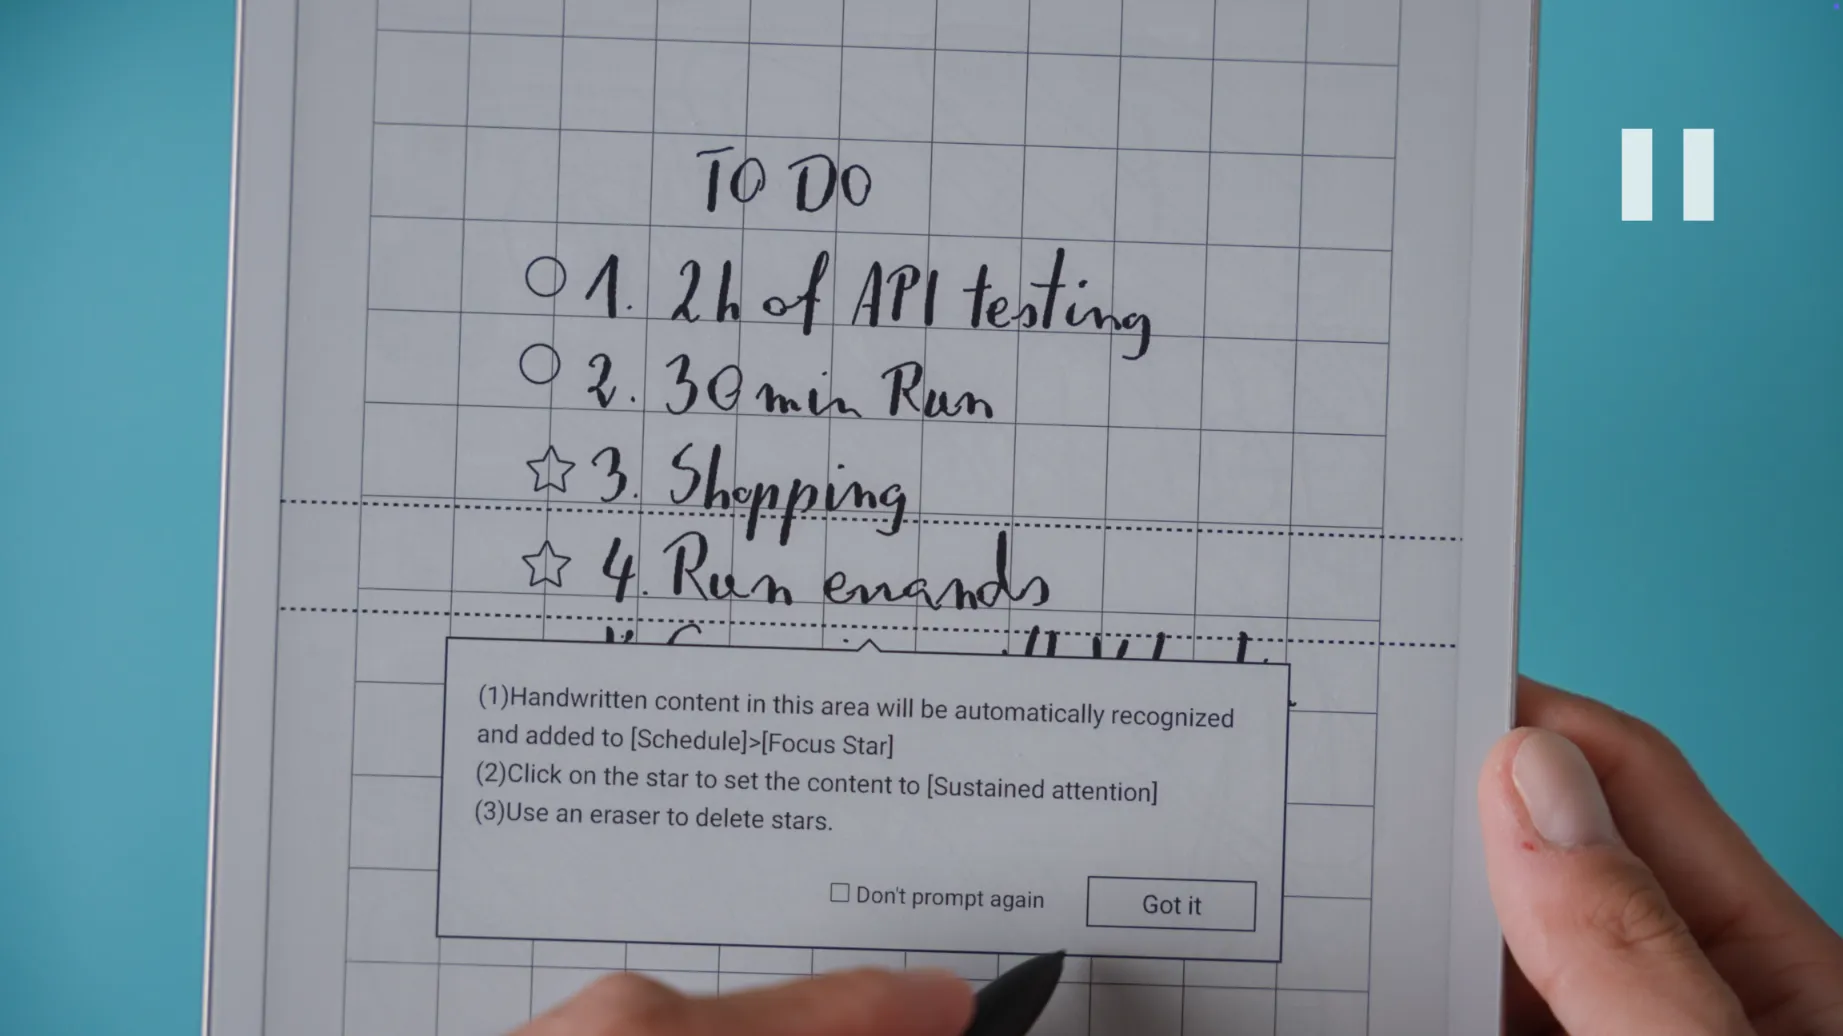 TO DO
1. 2h of API testing
2. 30 min Run
3. Shopping
4. Run errands
(1)Handwritten content in this area will be automatically recognized
and added to [Schedule]>[Focus Star]
(2)Click on the star to set the content to [Sustained attention]
(3)Use an eraser to delete stars.
Don't prompt again
Got it